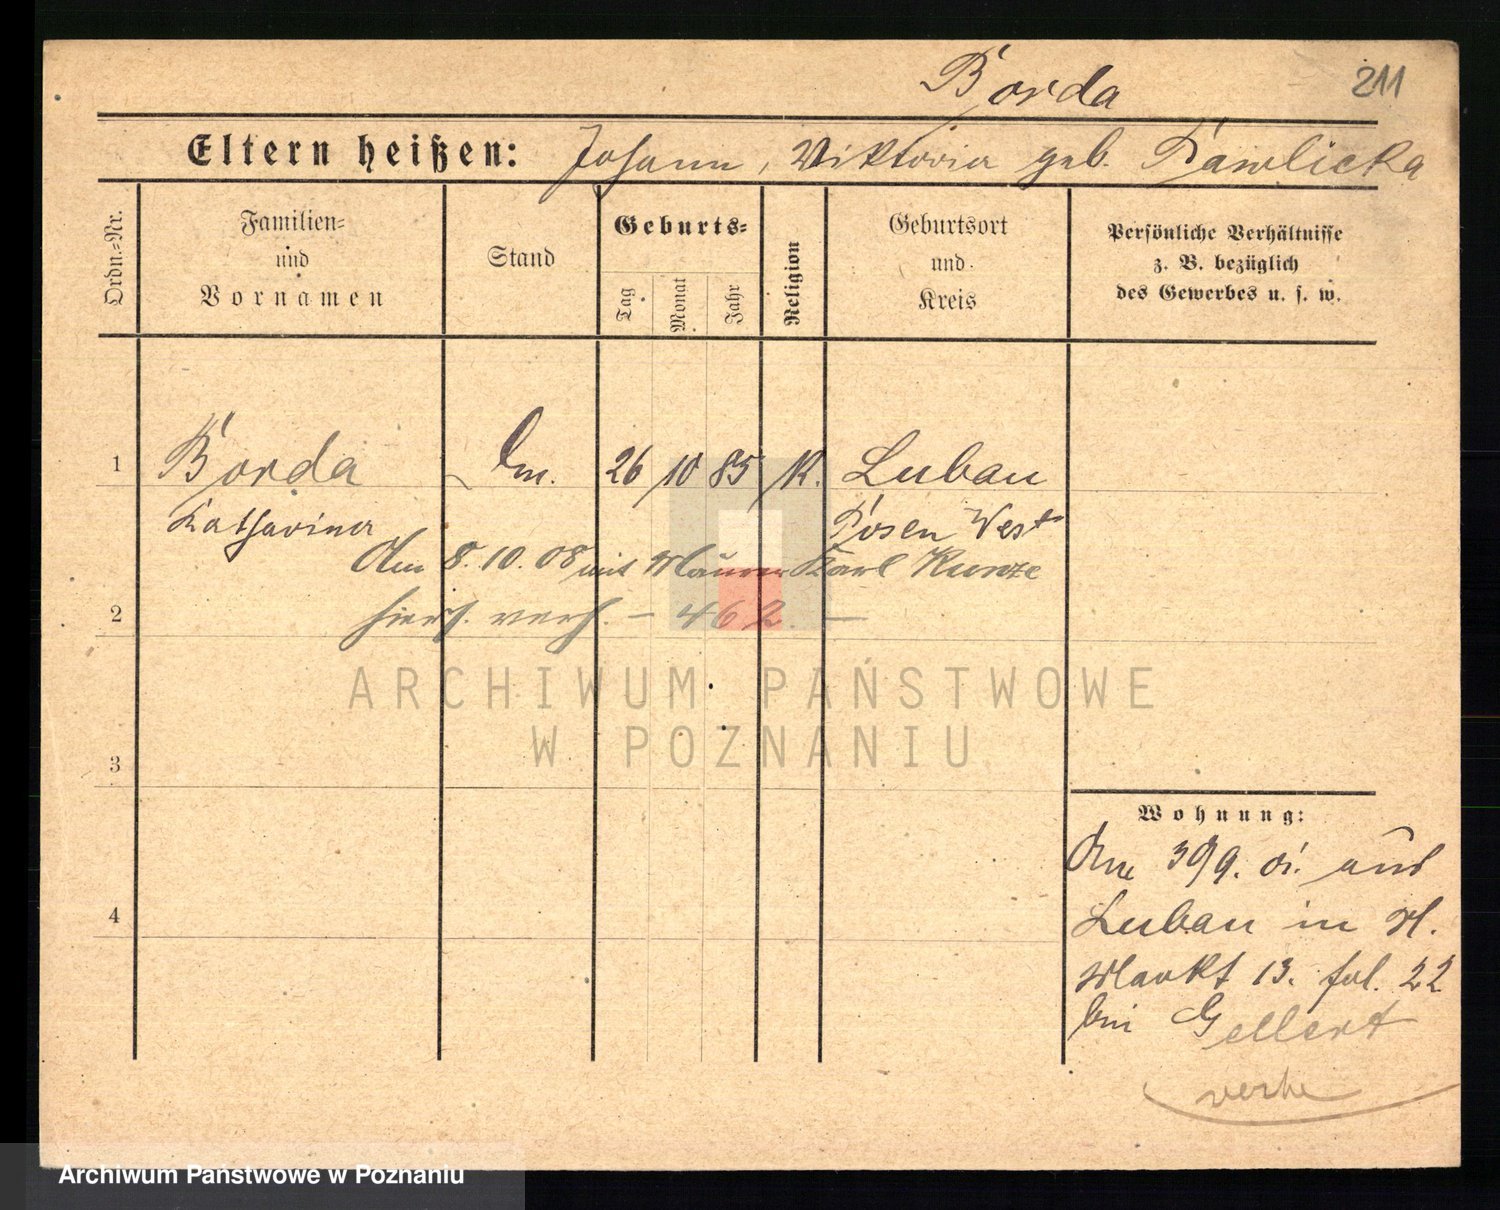 Borda 211
Eltern heißen: Johann, Viktoria geb. Pawlicka
Ordn.=Nr.
Familien=
und
Vornamen
Stand
Geburts=
Tag
Monat
Jahr
Religion
Geburtsort
und
Kreis
Persönliche Verhältnisse
z. B. bezüglich
des Gewerbes u. s. w.
1 Borda 26 10 85 K. Luban
Katharina Posen West
Am 8. 10. 08 mit Maurer Karl Kunze
2 hiers. verh. – 462. –
ARCHIWUM PAŃSTWOWE
W POZNANIU
3
4
Wohnung:
Am 30/9. 01. aus
Luban in
Markt 13. fol. 22
bei Gellert
Archiwum Państwowe w Poznaniu